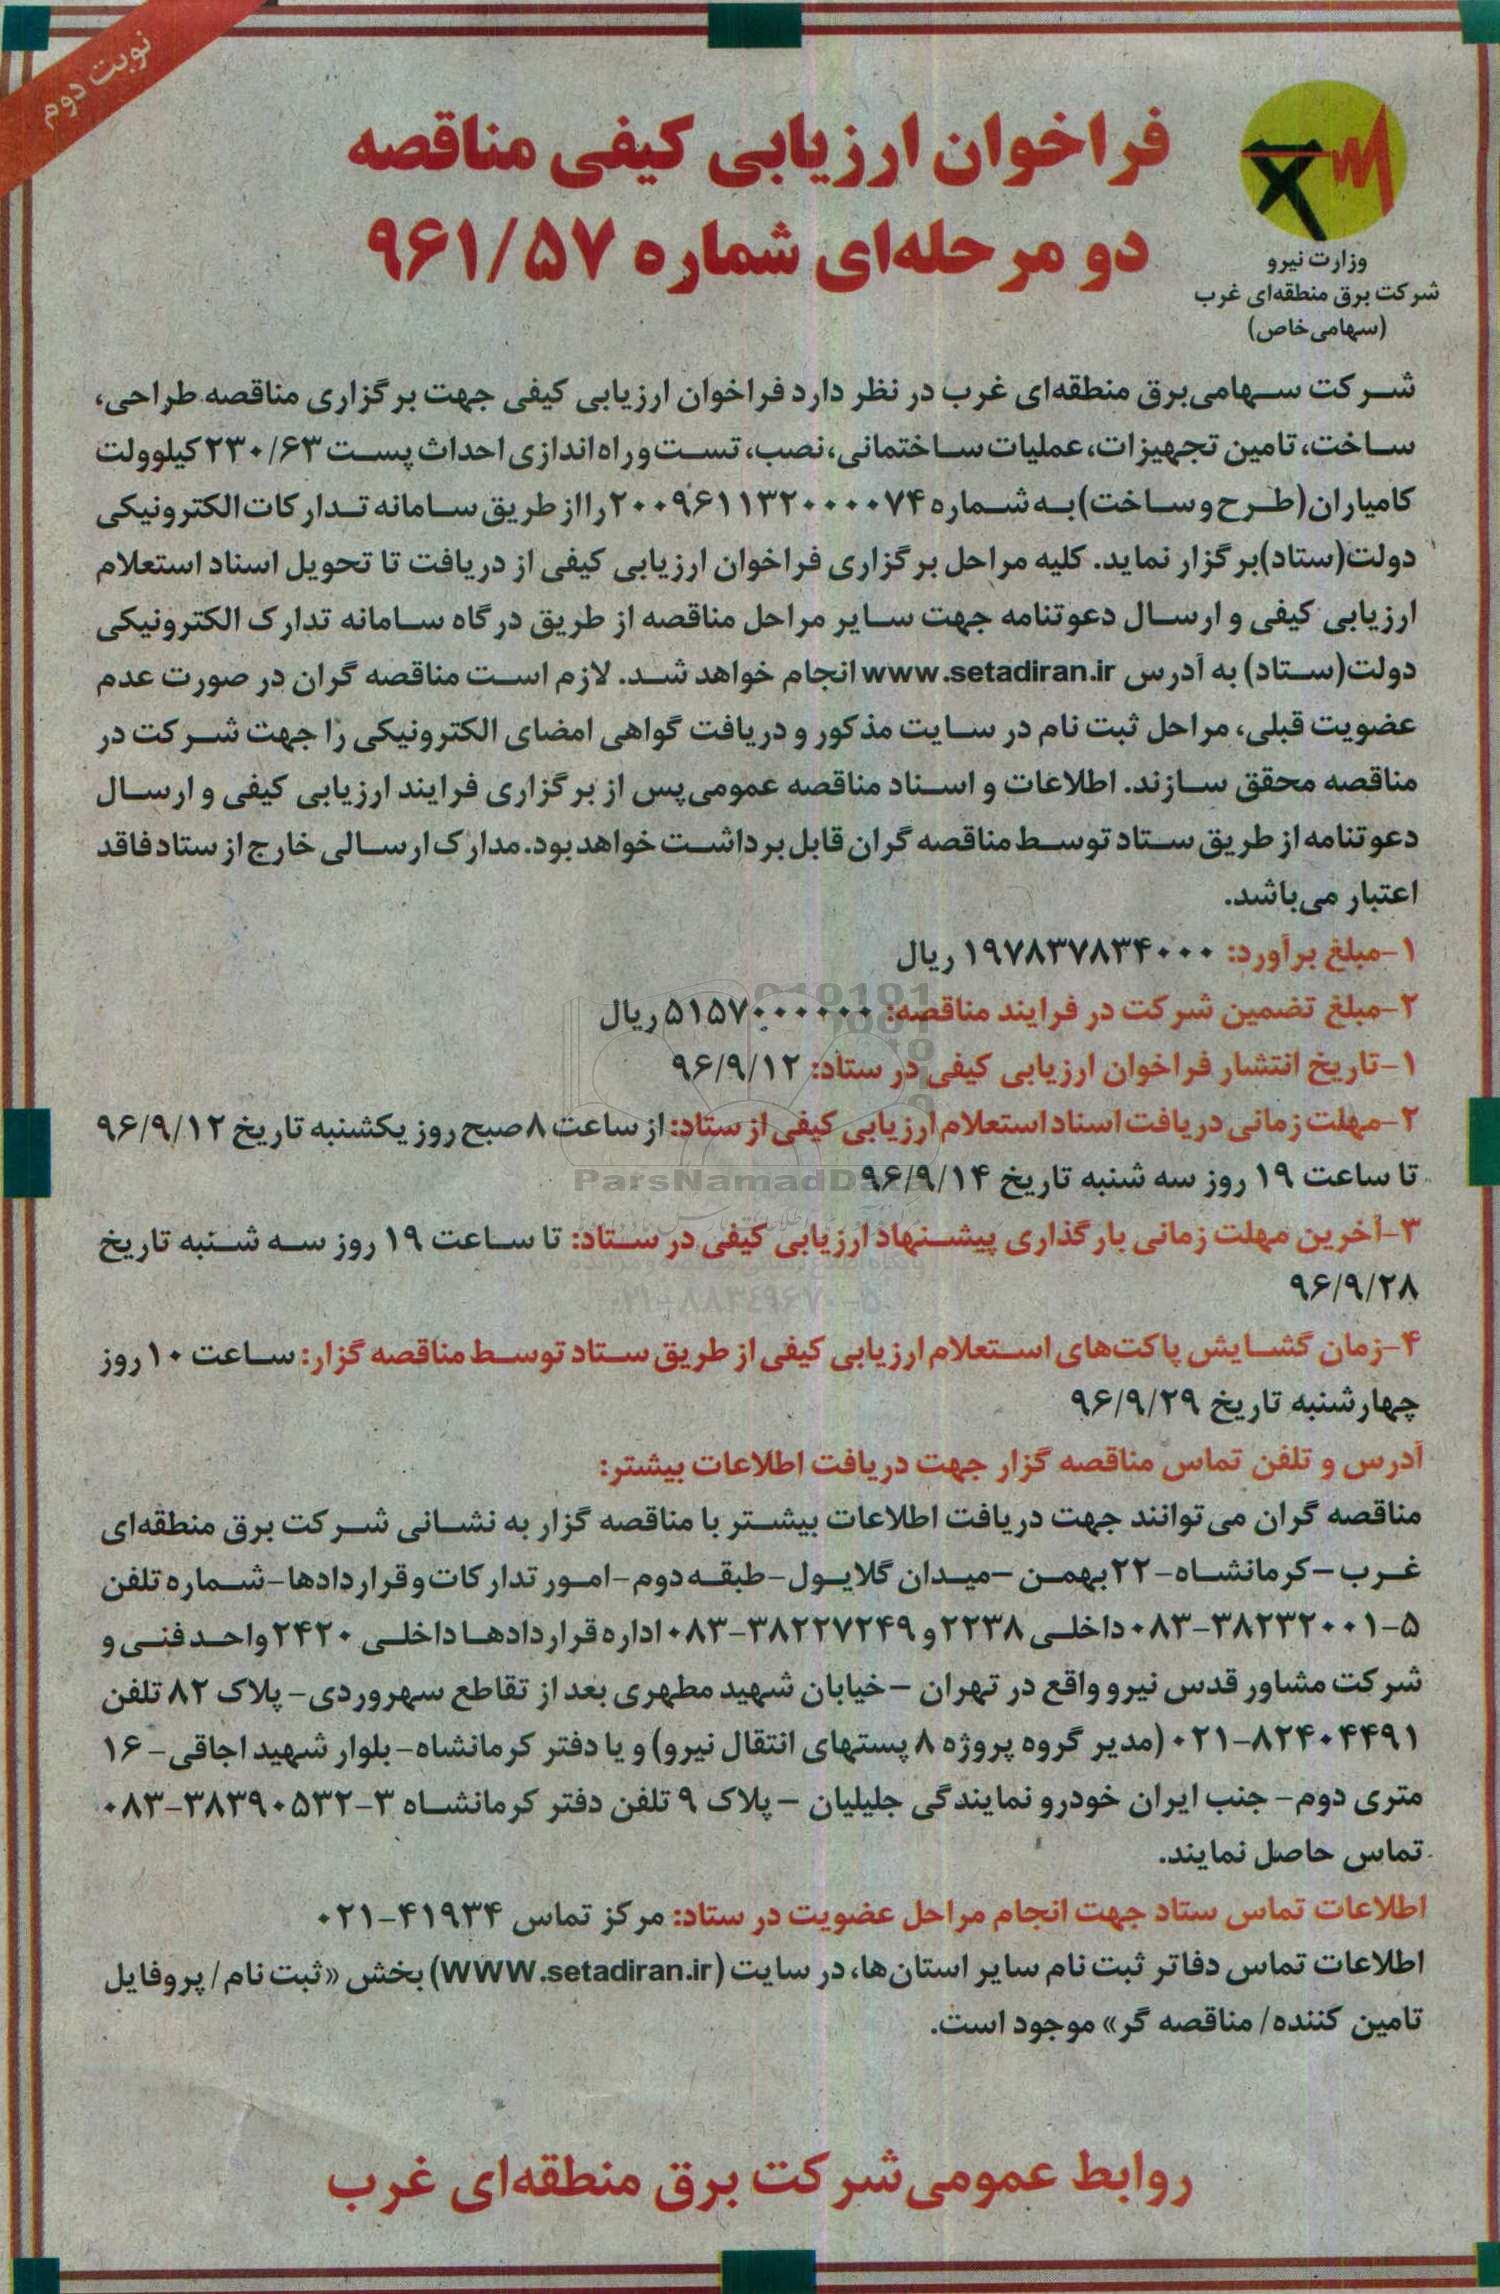 نوبت دوم
فراخوان ارزیابی کیفی مناقصه
دو مرحله‌ای شماره ۹۶۱/۵۷
وزارت نیرو
شرکت برق منطقه‌ای غرب
(سهامی خاص)
شرکت سهامی برق منطقه‌ای غرب در نظر دارد فراخوان ارزیابی کیفی جهت برگزاری مناقصه طراحی،
ساخت، تامین تجهیزات، عملیات ساختمانی، نصب، تست و راه اندازی احداث پست ۲۳۰/۶۳ کیلوولت
کامیاران (طرح و ساخت) به شماره ۲۰۰۹۶۱۱۳۲۰۰۰۰۷۴ را از طریق سامانه تدارکات الکترونیکی
دولت (ستاد) برگزار نماید. کلیه مراحل برگزاری فراخوان ارزیابی کیفی از دریافت تا تحویل اسناد استعلام
ارزیابی کیفی و ارسال دعوتنامه جهت سایر مراحل مناقصه از طریق درگاه سامانه تدارک الکترونیکی
دولت (ستاد) به آدرس www.setadiran.ir انجام خواهد شد. لازم است مناقصه گران در صورت عدم
عضویت قبلی، مراحل ثبت نام در سایت مذکور و دریافت گواهی امضای الکترونیکی را جهت شرکت در
مناقصه محقق سازند. اطلاعات و اسناد مناقصه عمومی پس از برگزاری فرایند ارزیابی کیفی و ارسال
دعوتنامه از طریق ستاد توسط مناقصه گران قابل برداشت خواهد بود. مدارک ارسالی خارج از ستاد فاقد
اعتبار می‌باشد.
۱-مبلغ برآورد: ۱۹۷۸۳۷۸۳۴۰۰۰ ریال
۲-مبلغ تضمین شرکت در فرایند مناقصه: ۵۱۵۷۰۰۰۰۰۰ ریال
۱-تاریخ انتشار فراخوان ارزیابی کیفی در ستاد: ۹۶/۹/۱۲
۲-مهلت زمانی دریافت اسناد استعلام ارزیابی کیفی از ستاد: از ساعت ۸ صبح روز یکشنبه تاریخ ۹۶/۹/۱۲
تا ساعت ۱۹ روز سه شنبه تاریخ ۹۶/۹/۱۴
ParsNamadData
۳-آخرین مهلت زمانی بارگذاری پیشنهاد ارزیابی کیفی در ستاد: تا ساعت ۱۹ روز سه شنبه تاریخ
۹۶/۹/۲۸
۴-زمان گشایش پاکت‌های استعلام ارزیابی کیفی از طریق ستاد توسط مناقصه گزار: ساعت ۱۰ روز
چهارشنبه تاریخ ۹۶/۹/۲۹
آدرس و تلفن تماس مناقصه گزار جهت دریافت اطلاعات بیشتر:
مناقصه گران می توانند جهت دریافت اطلاعات بیشتر با مناقصه گزار به نشانی شرکت برق منطقه‌ای
غرب – کرمانشاه- ۲۲ بهمن –میدان گلایول- طبقه دوم –امور تدارکات و قراردادها- شماره تلفن
۵-۰۸۳-۳۸۲۳۲۰۰۱ داخلی ۲۲۳۸ و ۰۸۳-۳۸۲۲۷۲۴۹ اداره قراردادها داخلی ۲۴۲۰ واحد فنی و
شرکت مشاور قدس نیرو واقع در تهران – خیابان شهید مطهری بعد از تقاطع سهروردی- پلاک ۸۲ تلفن
۰۲۱-۸۲۴۰۴۴۹۱ (مدیر گروه پروژه ۸ پستهای انتقال نیرو) و یا دفتر کرمانشاه- بلوار شهید اجاقی- ۱۶
متری دوم- جنب ایران خودرو نمایندگی جلیلیان – پلاک ۹ تلفن دفتر کرمانشاه ۳-۰۸۳-۳۸۳۹۰۵۳۲
تماس حاصل نمایند.
اطلاعات تماس ستاد جهت انجام مراحل عضویت در ستاد: مرکز تماس ۰۲۱-۴۱۹۳۴
اطلاعات تماس دفاتر ثبت نام سایر استان‌ها، در سایت (WWW.setadiran.ir) بخش «ثبت نام / پروفایل
تامین کننده/ مناقصه گر» موجود است.
روابط عمومی شرکت برق منطقه‌ای غرب